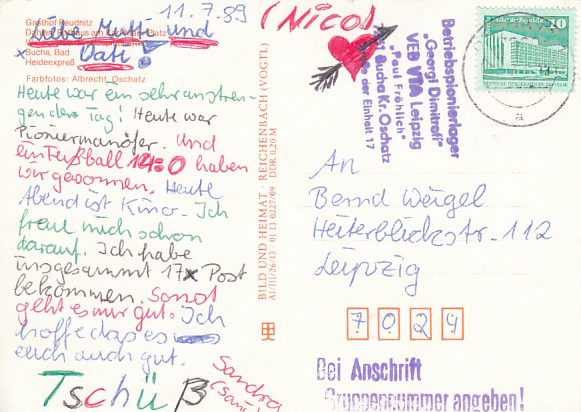 11.7.89
(Nico)
Gasthof Reudnitz
Liebe Mutti und
Vati!
Bucha, Bad
Heideexpreß
Farbfotos: Albrecht, Oschatz
Heute war ein sehr anstren-
gender Tag! Heute war
Pioniermanöfer. Und
ein Fußball 14:0 haben
wir gewonnen. Heute
Abend ist Kino. Ich
freue mich schon
darauf. Ich habe
insgesammt 17x Post
bekommen. Sonst
geht es mir gut. Ich
hoffe das es
euch auch gut.
Tschüß
Sandra
BILD UND HEIMAT · REICHENBACH (VOGTL)
A1/III/26/13 · 01 13 0227/09 · DDR 0,20 M
Betriebspionierlager
„Georgi Dimitroff"
VEB VTA Leipzig
„Paul Fröhlich"
Bucha Kr. Oschatz
der Einheit 17
10
An
Bernd Weigel
Heiterblickstr. 112
Leipzig
7024
Bei Anschrift
Gruppennummer angeben!